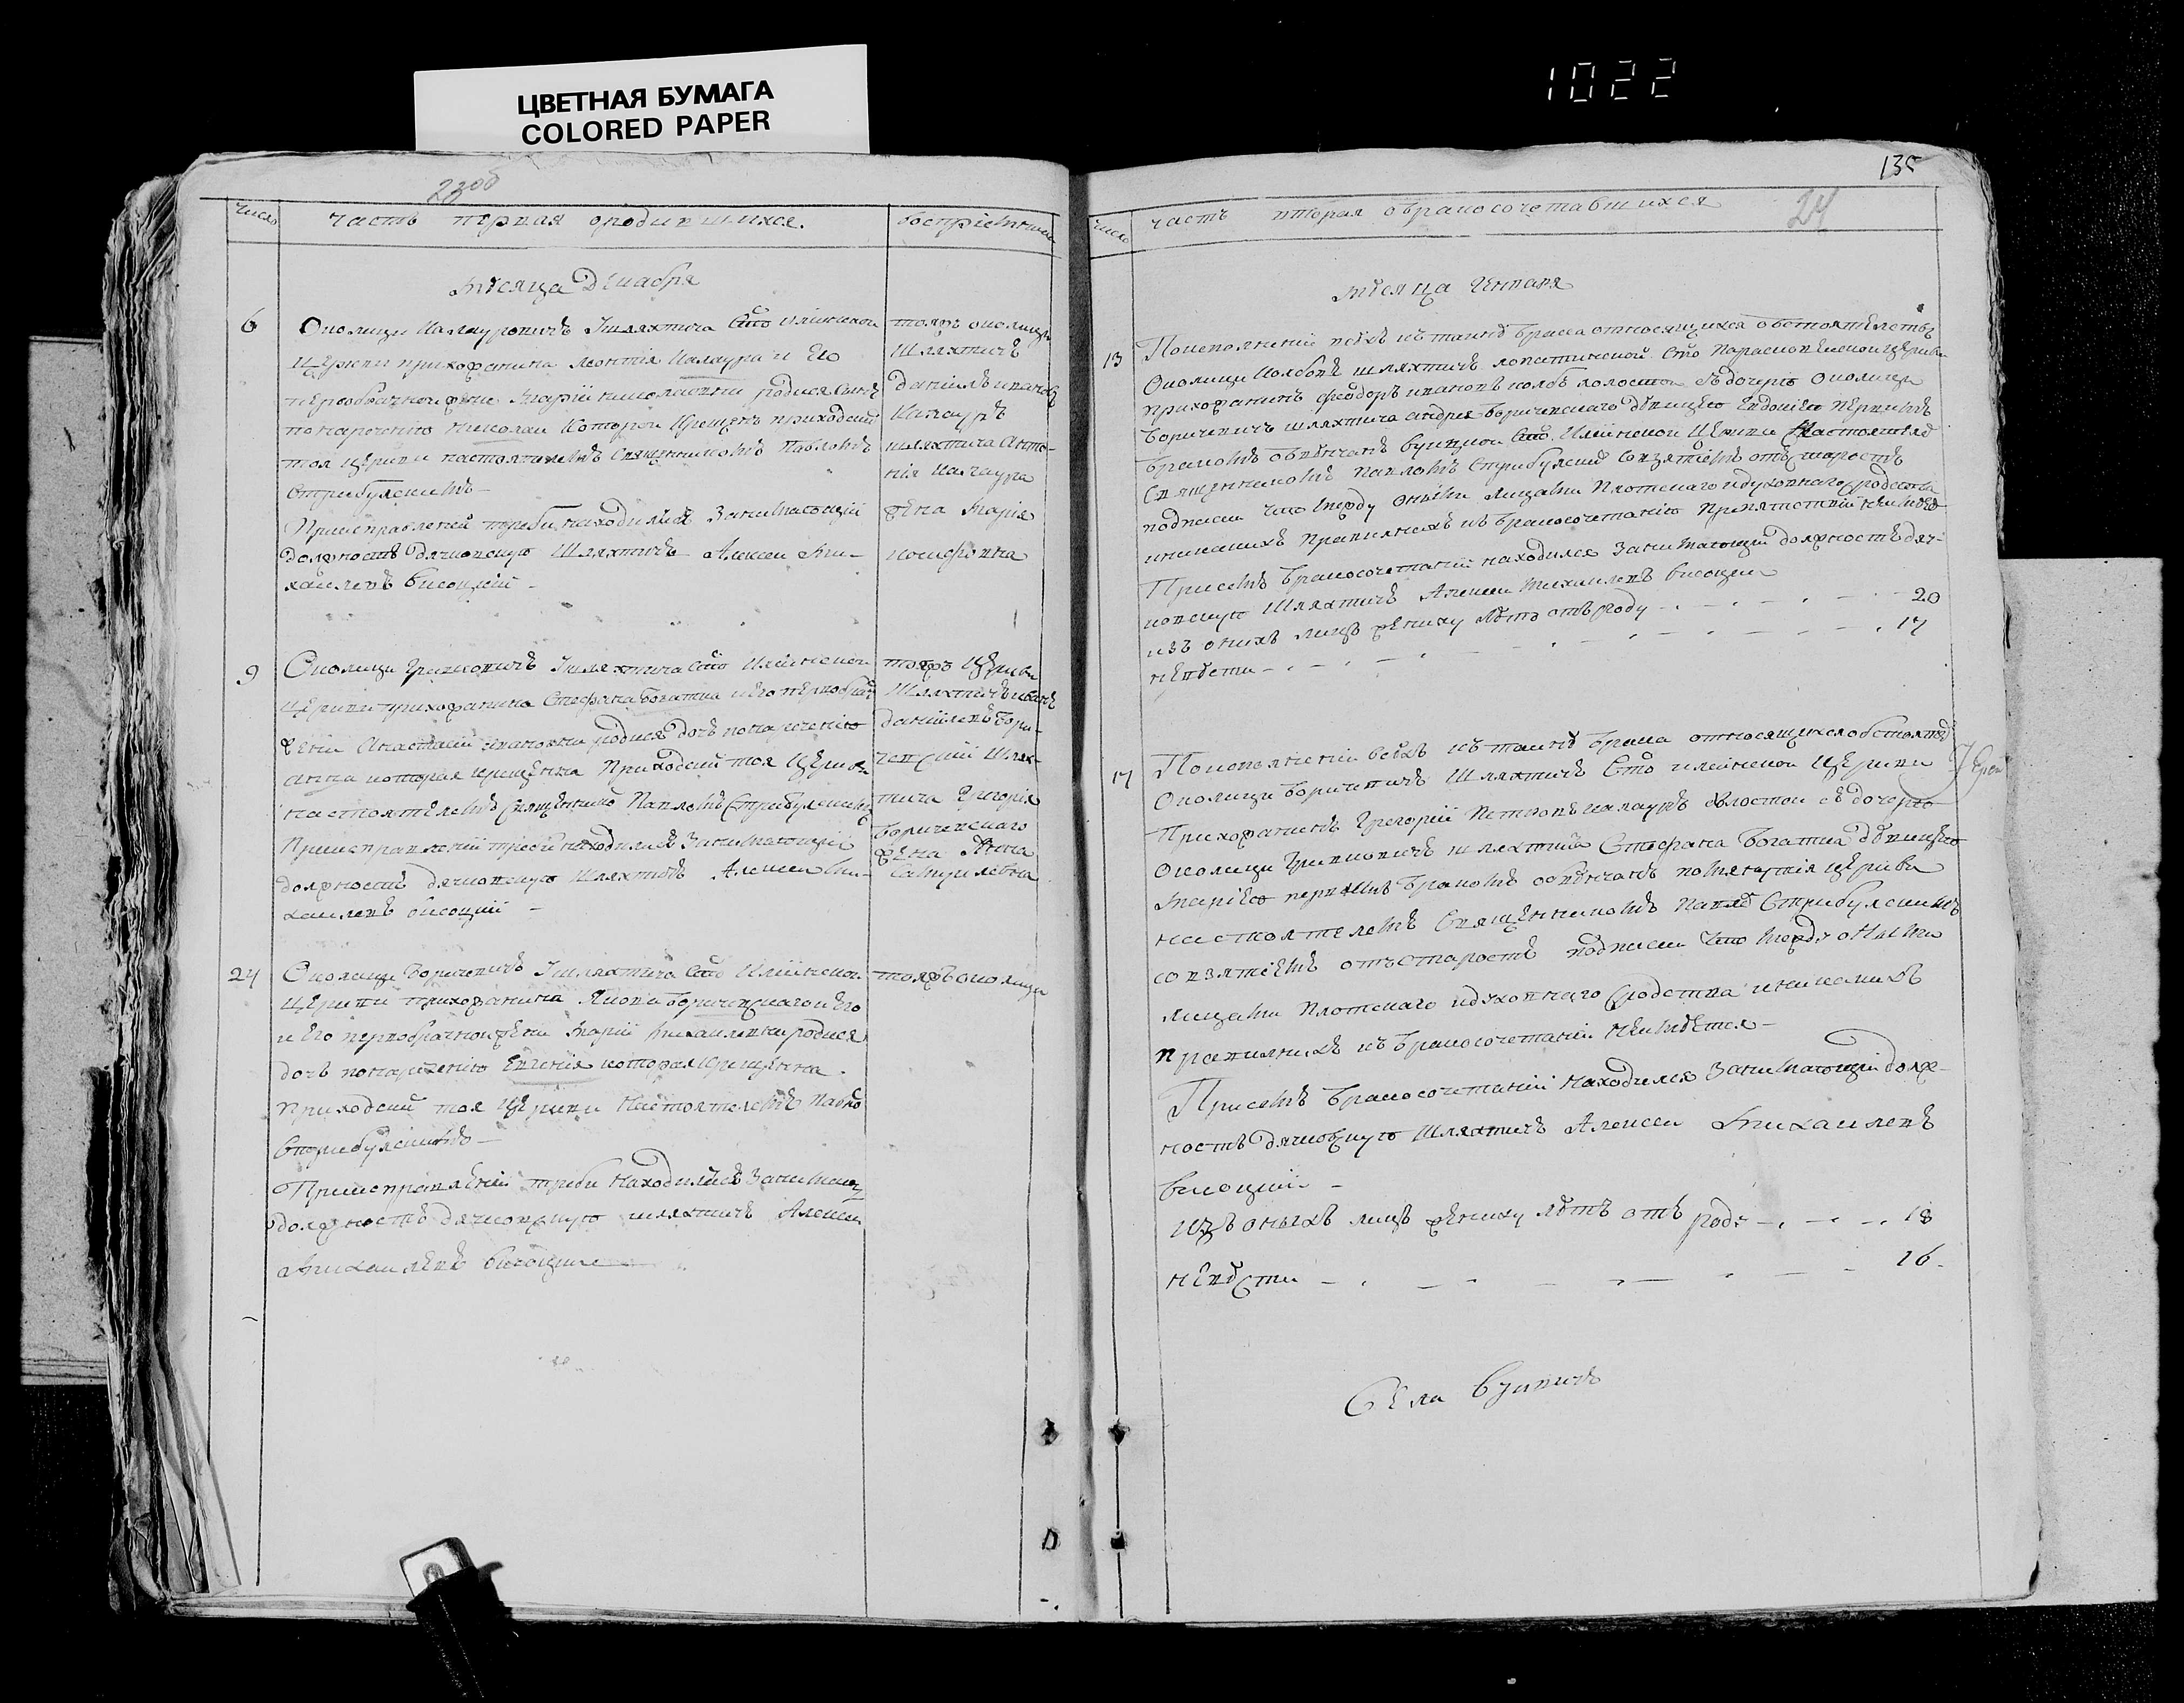 ЦВЕТНАЯ БУМАГА
COLORED PAPER
1022
23об
Число
часть первая ородившихся.
Воспріемники
Мѣсяца Декабря
6
Околици Калауровичъ Ішляхтича Сто Илїинской
церкви прихожанина Леонтія Калаура и Его
первобрачной жены Маріи Николаевни родися Сынъ
понареченію Николаи которои крещенъ приходскій
тоя церкви настоятелемъ Священникомъ Павломъ
Стрибулскимъ
Приисправленіи требы находился Занимающій
должность дячковскую Шляхтичъ Алексеи Ми-
хаилевъ Висоцкій
тояжъ околици
Шляхтичъ
Даніилъ Ивановъ
Калауръ
шляхтича Анто-
нія Калаура
Жена Марія
иосифовна
9
Околици Грицковичъ Ішляхтича Сто Илїинской
церкви прихожанина Стефана Богатка и Его первобрач
Жены Анастасіи Ивановни родися дочь понареченію
Анна которая крещенна Приходскій тоя Церкви
настоятелемъ Священнико Павломъ Стрибулскимъ
Приисправленіи требы находился Занимающій
должность дячковскую шляхтичъ Алексеи Ми-
хаилевъ Висоцкій
тояжъ Церкви
Шляхтичъ Иванъ
Даніилевъ Бори-
чевскій Шлях-
тича Грегорія
Боричевскаго
Жена Анна
Гаврилевна
24
Околици Боричевичъ Ішляхтича Сто Илїинской
Церкви прихожанина Якова Боричевскаго и Его
и Его первобрачной жены Маріи Михаилевни родися
дочь понареченію Евгенія которая крещенна
приходскій тоя Церкви Настоятелемъ Павло
Стрибулскимъ
Приисправленіи требы находился Занимающ
должность дячковскую шляхтичъ Алексеи
Михаилевъ Висоцкии
тояжъ околици
135
24
Число
часть вторая обракосочетавшихся
Мѣсяца Генваря
13
Поисполненіи всѣхъ къ таинѣ брака относящихся обстоятелствъ
Околици Колбовъ шляхтичъ лопатинской Сто Параскопеевской церкви
прихожанинъ Феодоръ Ивановъ Колбъ холостои Здочерю Околици
Боричевичъ шляхтича Андрея Боричевскаго дѣвицею Евдокіею первимъ
бракомъ обвѣнчанъ Сто Илїинской Церкви Настоятеле
Священникомъ Павломъ Стрибулскимъ Совзятіемъ отъ старостъ
подписки что между оными лицами Плотскаго идуховнаго сродства
иникакихъ Правилнихъ къ бракосочетанію Препятствій неимѣется
Присемъ бракосочетаніи находился Занимающи должность дяч-
ковскую Шляхтичъ Алексеи Михаилевъ Висоцки
изъ онихъ лицъ жениху лѣтъ отъ роду 20
невѣсти 17
17
Поисполненіи всѣхъ къ таинѣ брака относящихся обстоятел
Околици Боричевичъ Шляхтичъ Сто Илїинской Церкви
Прихожанинъ Грегорій Петровъ Калауръ холостои съ дочерю
Околици Грицковичъ шляхтича Стефана Богатка дѣвицею
Маріею первимъ бракомъ обвѣнчанъ церкви
настоятелемъ Священникомъ Павло Стрибулскимъ
совзятіемъ отъ старостъ подписки что между оными
лицами Плотскаго идуховнаго сродства иникакихъ
правилнихъ къ бракосочетаніи неимѣется
Присемъ бракосочетаніи находился Занимающіи долж-
ность дячковскую Шляхтичъ Алексеи Михаилевъ
Висоцкіи
изъ оныхъ лицъ жениху лѣтъ отъ роду 18
невѣсти 16